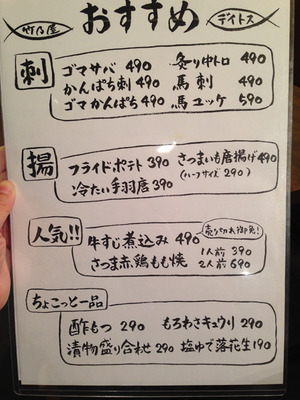 竹乃屋 おすすめ デイトス
刺
ゴマサバ 490 炙り中トロ 490
かんぱち刺 490 馬刺 490
ゴマかんぱち 490 馬ユッケ 590
揚
フライドポテト 390 さつまいも唐揚げ 490
冷たい手羽唐 390 (ハーフサイズ 290)
人気!! 売り切れ御免!
牛すじ煮込み 490 1人前 390
さつま赤鶏もも焼 2人前 690
ちょこっと一品
酢もつ 290 もろわさキュウリ 290
漬物盛り合わせ 290 塩ゆで落花生 190